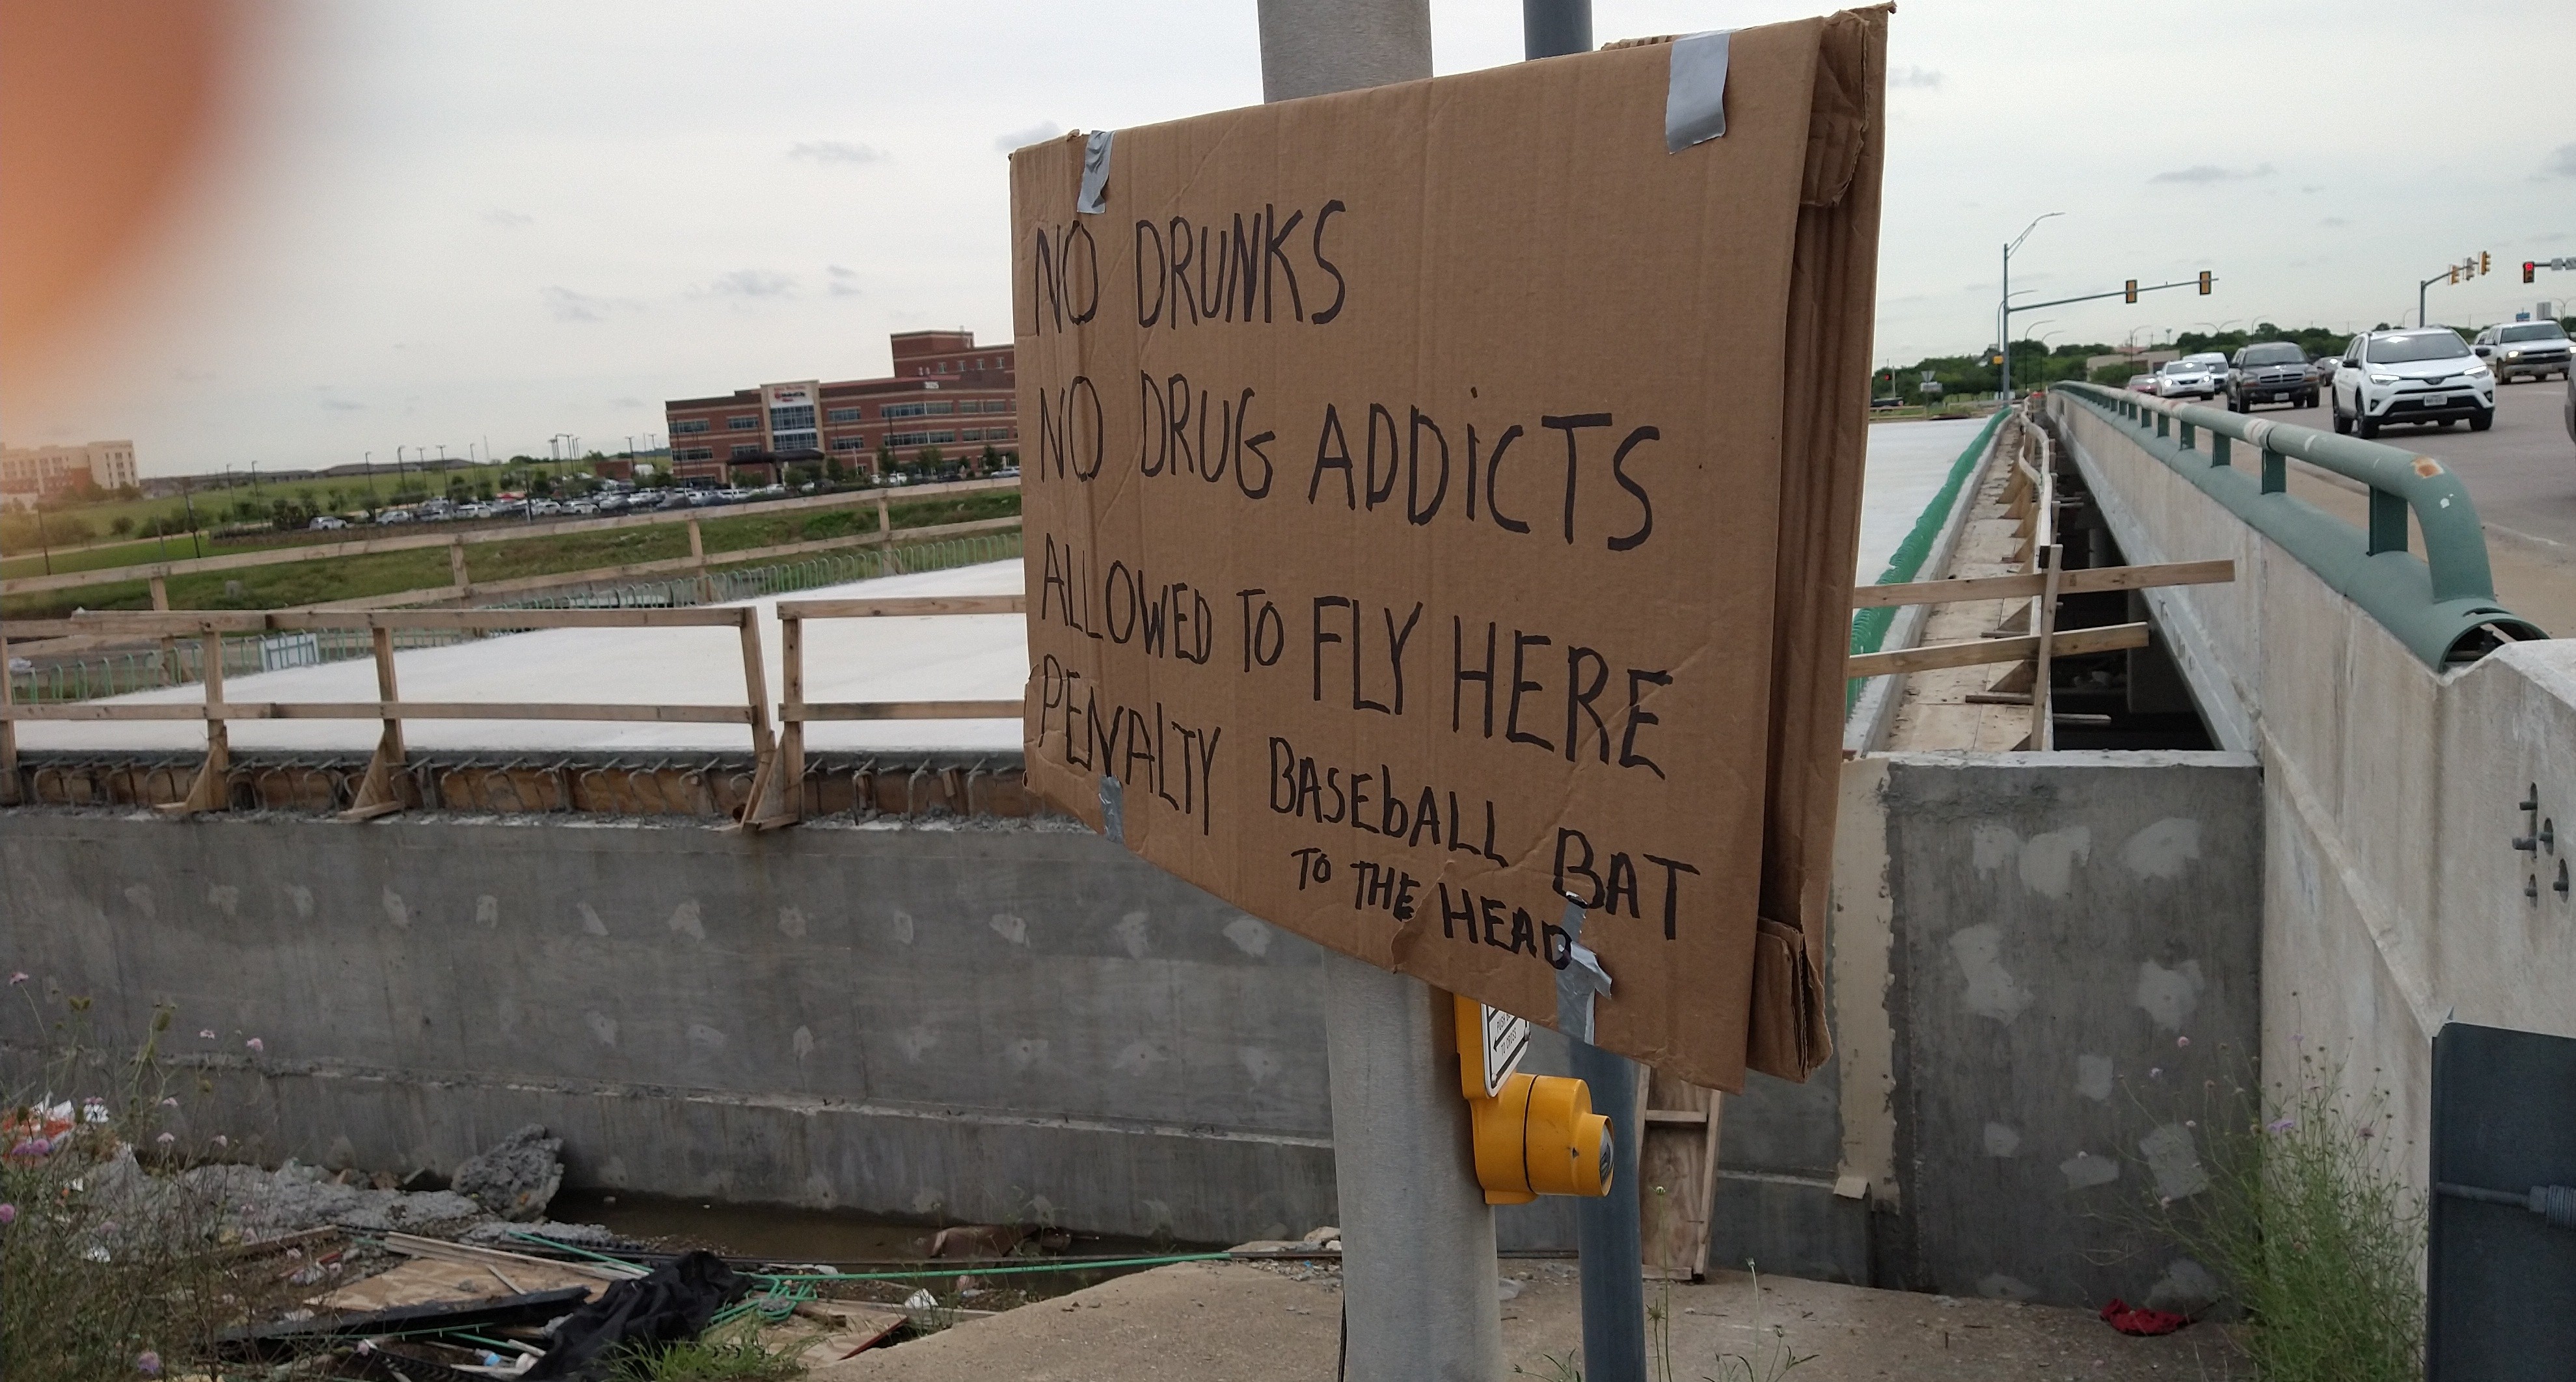 NO DRUNKS
NO DRUG ADDiCTS
ALLOWED TO FLY HERE
PENALTY BASEbALL BAT
TO THE HEAD
TO CROSS